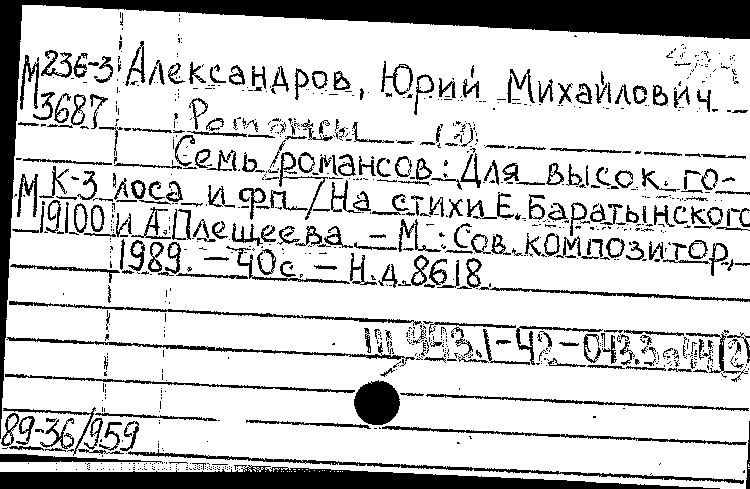 М 236-3 Александров, Юрий Михайлович
3687
Романсы (2)
Семь романсов: Для высок. го-
М К-3 лоса и фп. / На стихи Е. Баратынского
19100 и А. Плещеева. – М.: Сов. композитор,
1989. – 40 с. – Н.д. 8618.
III 943.1-42-043.3
89-36/959